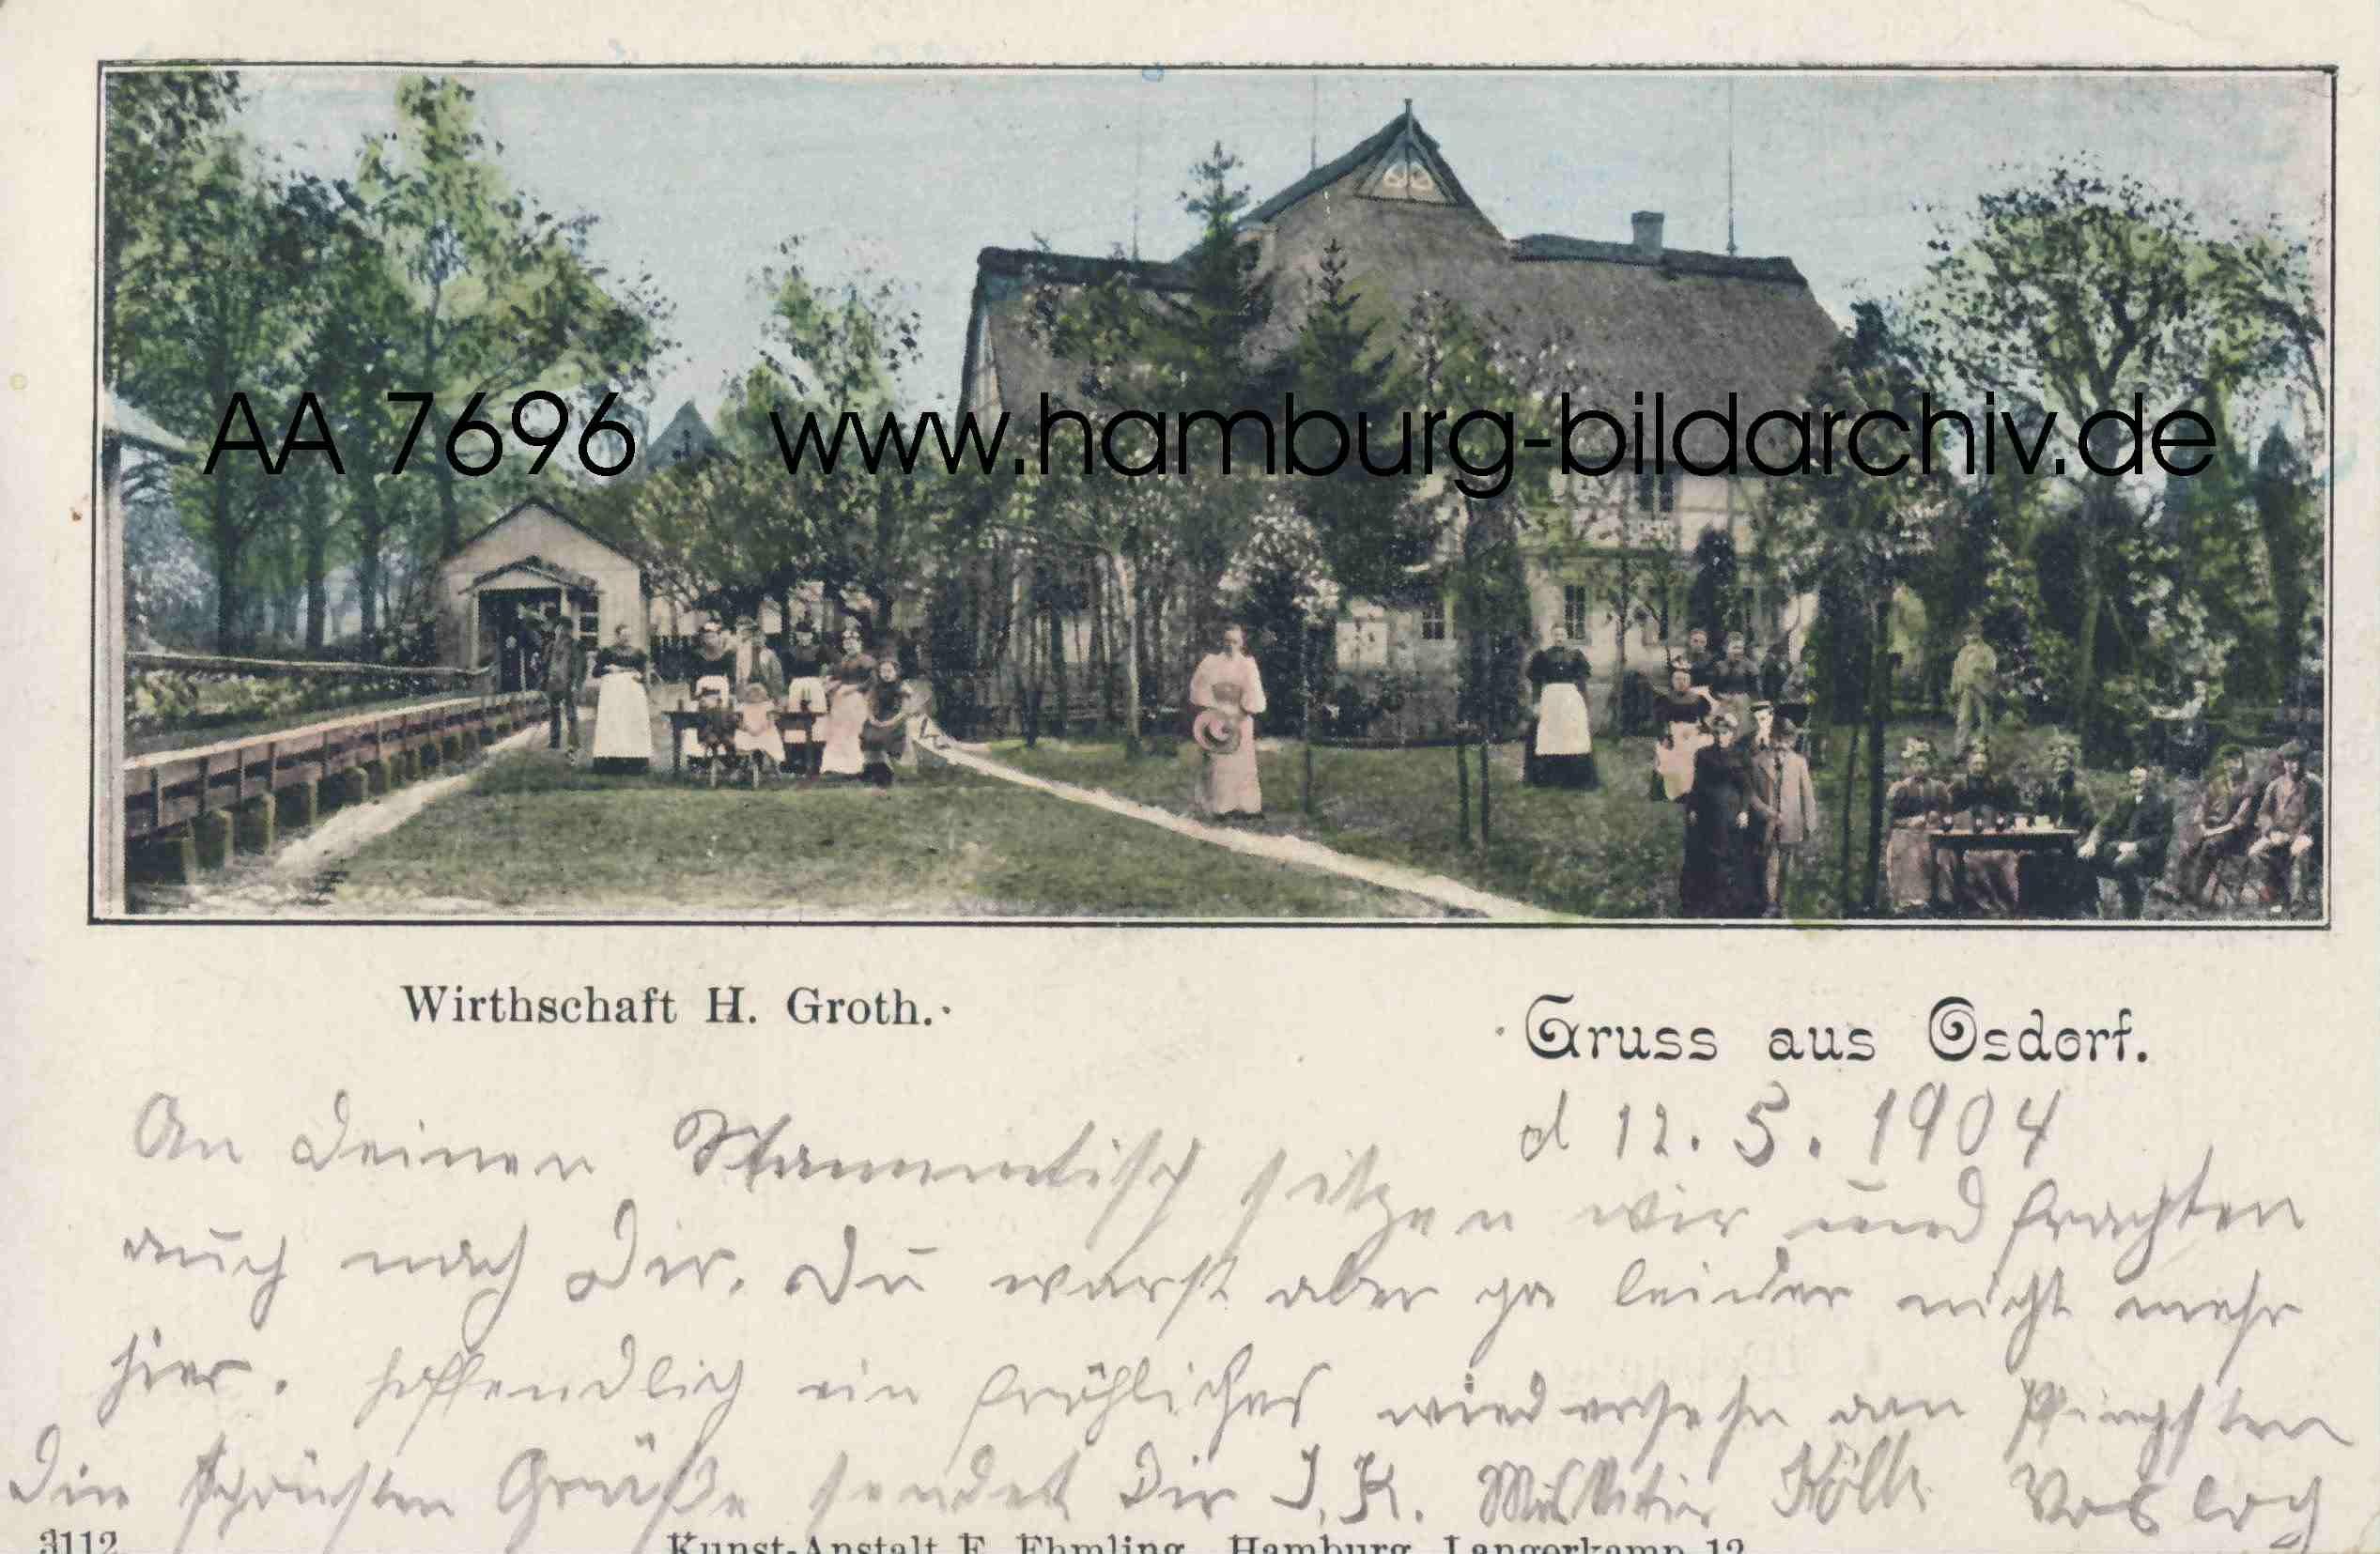 AA 7696 www.hamburg-bildarchiv.de
Wirthschaft H. Groth.
Gruss aus Osdorf.
d 12. 5. 1904
An Deinen Stammtisch sitzen wir und fragten
auch nach Dir. Du warst aber ja leider nicht mehr
hier. Hoffendlich ein fröhliches wiedersehn an Pfingsten
Die schönsten Grüße sendet Dir J. K.
3112 Kunst-Anstalt E. Ehmling, Hamburg, Langerkamp 12